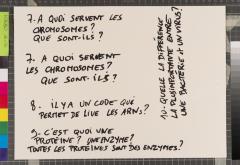 7. A QUOI SERVENT LES
CHROMOSOMES?
QUE SONT-ILS?
7. A QUOI SERBENT
LES CHROMOSOMES?
QUE SONT-ILS?
8- IL Y A UN CODE QUE
PERMET DE LIRE LES ARNS?
9- C'EST QUOI UNE
PROTÉINE? UNE ENZYME?
TOUTES LES PROTÉINES SONT DES ENZYMES?
10- QUELLE LA DIFFÉRENCE
LA PLUS IMPORTANTE ENTRE
UNE BACTÉRIE & UN VIRUS?